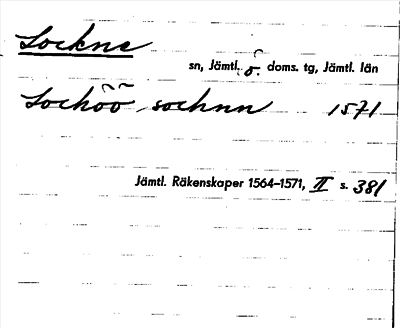 Lockne
sn, Jämtl. ö. doms. tg, Jämtl. län
Lochöö sochnn 1571
Jämtl. Räkenskaper 1564–1571, II s. 381